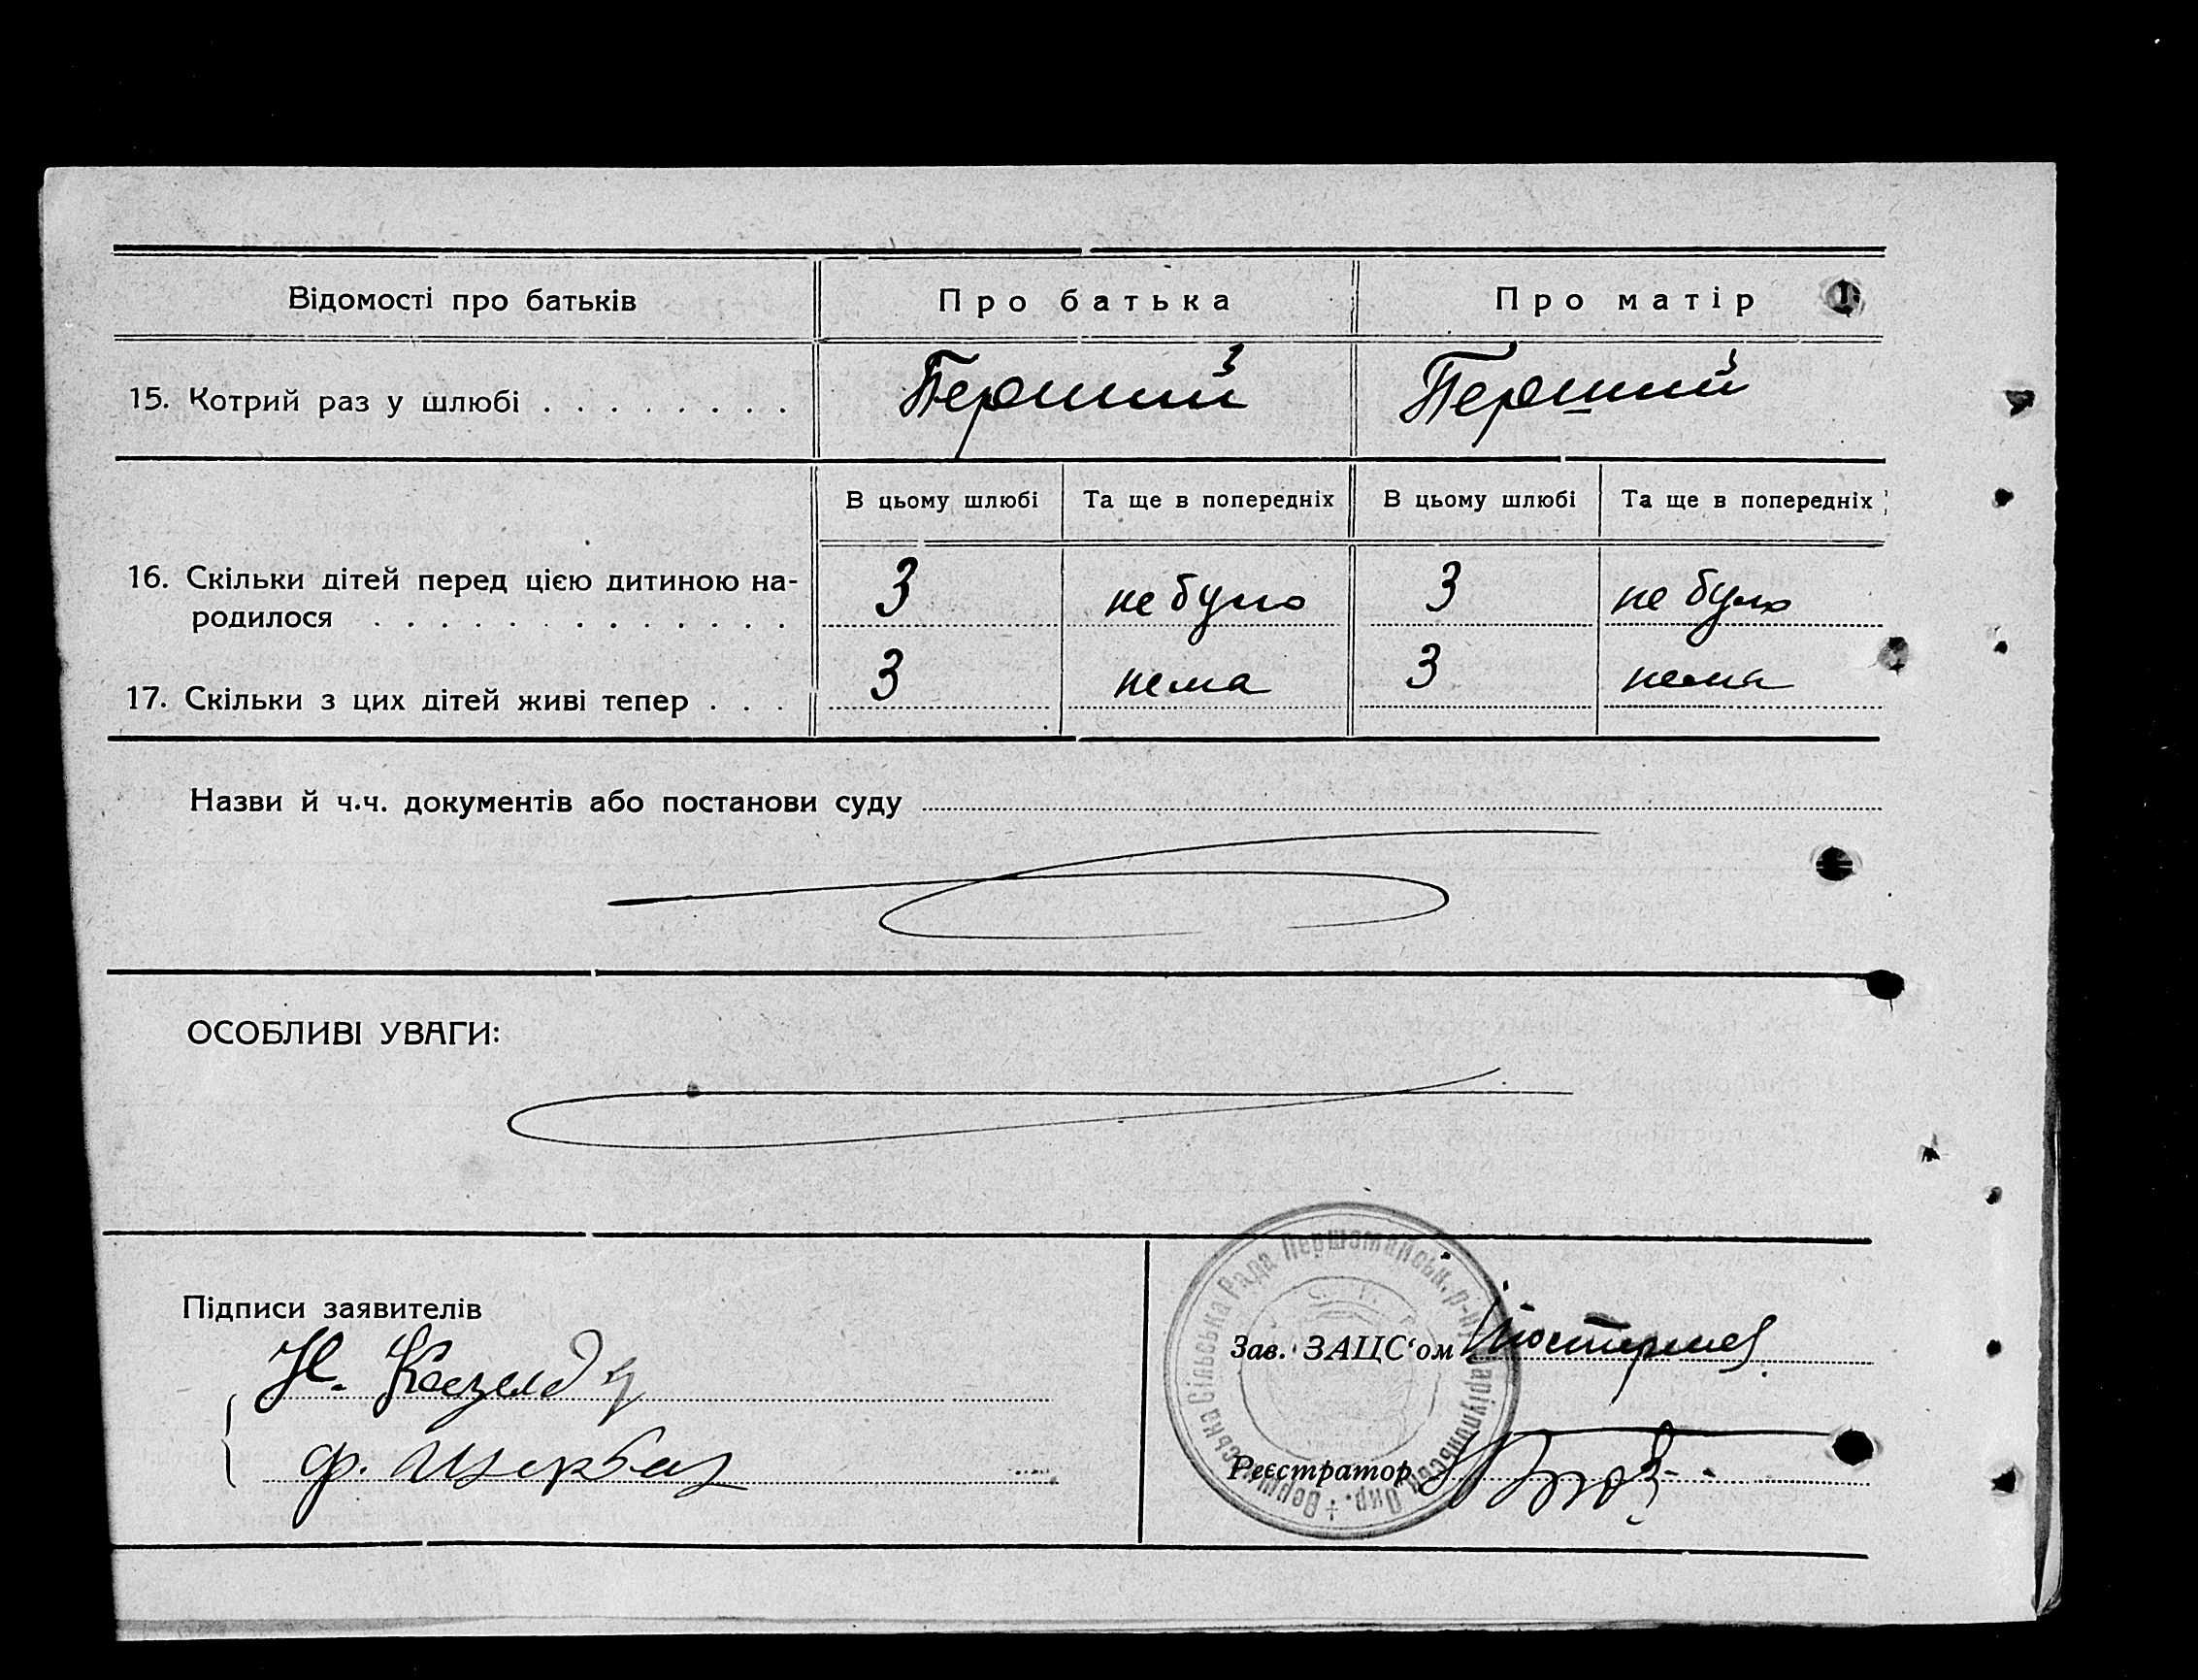 Відомості про батьків
Про батька
Про матір
15. Котрий раз у шлюбі . . . . . . . .
Перший
Перший
В цьому шлюбі
Та ще в попередніх
В цьому шлюбі
Та ще в попередніх
16. Скільки дітей перед цією дитиною на-
родилося . . . . . . . . . . . . .
3
не було
3
не було
17. Скільки з цих дітей живі тепер . . .
3
нема
3
нема
Назви й ч.ч. документів або постанови суду
ОСОБЛИВІ УВАГИ:
Підписи заявителів
Ф. Щербак
Зав. ЗАЦС‘ом
Реєстратор
Сільська Рада Першотравенськ. р-ну Маріупольськ. Окр.